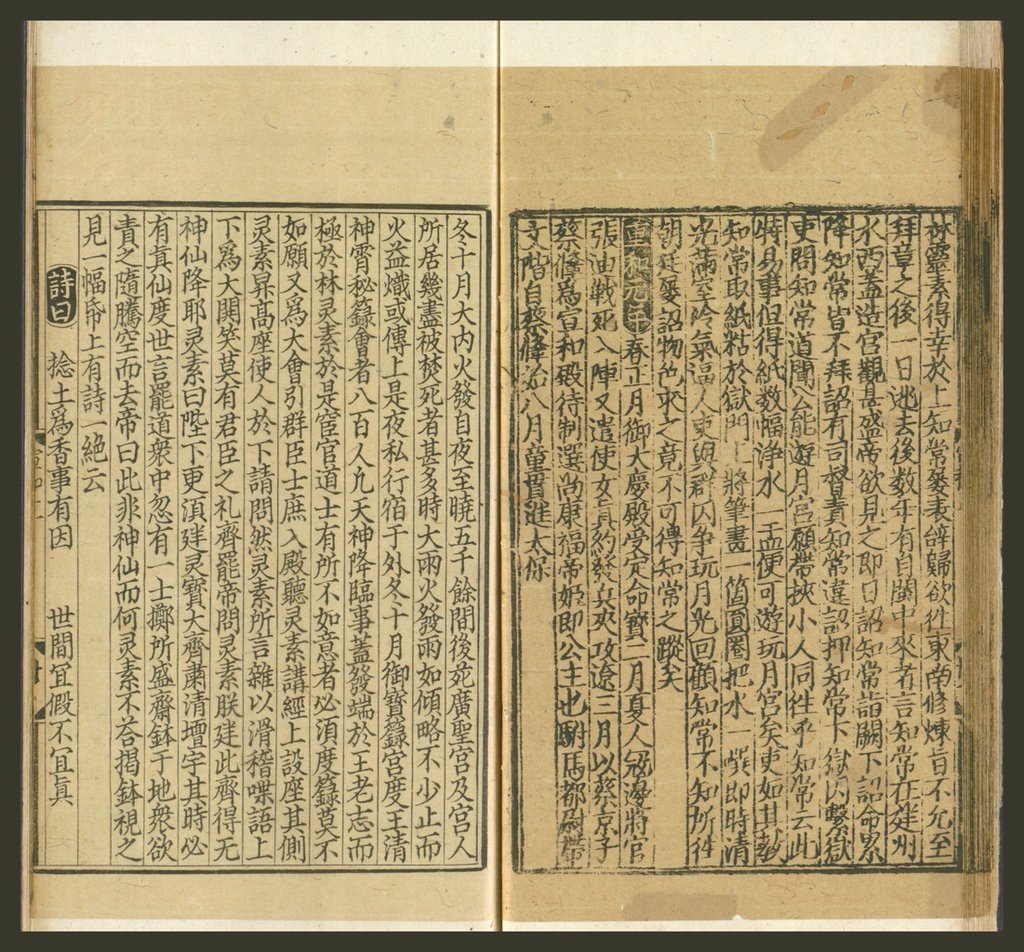 林靈素得幸於上知常屡表辞歸欲徃東南修煉旨不允至
拜章之後一日逃去後数年有自閩中來者言知常在建州
水西蓋造宮觀甚盛帝欲見之即日詔知常詣闕下詔命累
降知常皆不拜詔有司督責知常違詔押知常下獄囚繫獄
吏問知常道聞公能遊月宮願帶挾小人同徃乎知常云此
特易事但得紙数幅净水一盂便可遊玩月宮矣吏如其教
知常取紙粘於獄門上將筆畫一箇圓圈把水一噀即時清
光滿室冷氣逼人吏與群囚争玩月光回顧知常不知所徃
朝廷屡詔物色求之竟不可得知常之蹤矣
重和元年春正月御大慶殿受定命寳二月夏人寇邊將官
張迪戰死入陣又遣使女真約發兵夾攻遼三月以蔡京子
蔡鞗爲宣和殿待制選尚康福帝姬即公主也駙馬都尉帶
文階自蔡鞗始八月童貫進太保
冬十月大内火發自夜至曉五千餘間後苑廣聖宮及宮人
所居幾盡被焚死者甚多時大雨火發雨如傾略不少止而
火益熾或傳上是夜私行宿于外冬十月御寳籙宮度王清
神霄秘籙會者八百人凢天神降臨事蓋發端於王老志而
極於林灵素於是宦官道士有所不如意者必須度籙莫不
如願又爲大會引群臣士庶入殿聽灵素講經上設座其側
灵素昇高座使人於下請問然灵素所言雜以滑稽喋語上
下爲大関笑莫有君臣之礼齊罷帝問灵素朕建此齊得无
神仙降耶灵素曰陛下更湏建灵寳大齊肅清壇宇其時必
有真仙度世言罷道衆中忽有一士擲所盛齋鉢于地衆欲
責之隨騰空而去帝曰此非神仙而何灵素不荅揭鉢視之
見一幅帋上有詩一絕云
詩曰　捻土爲香事有因　世間冝假不冝真